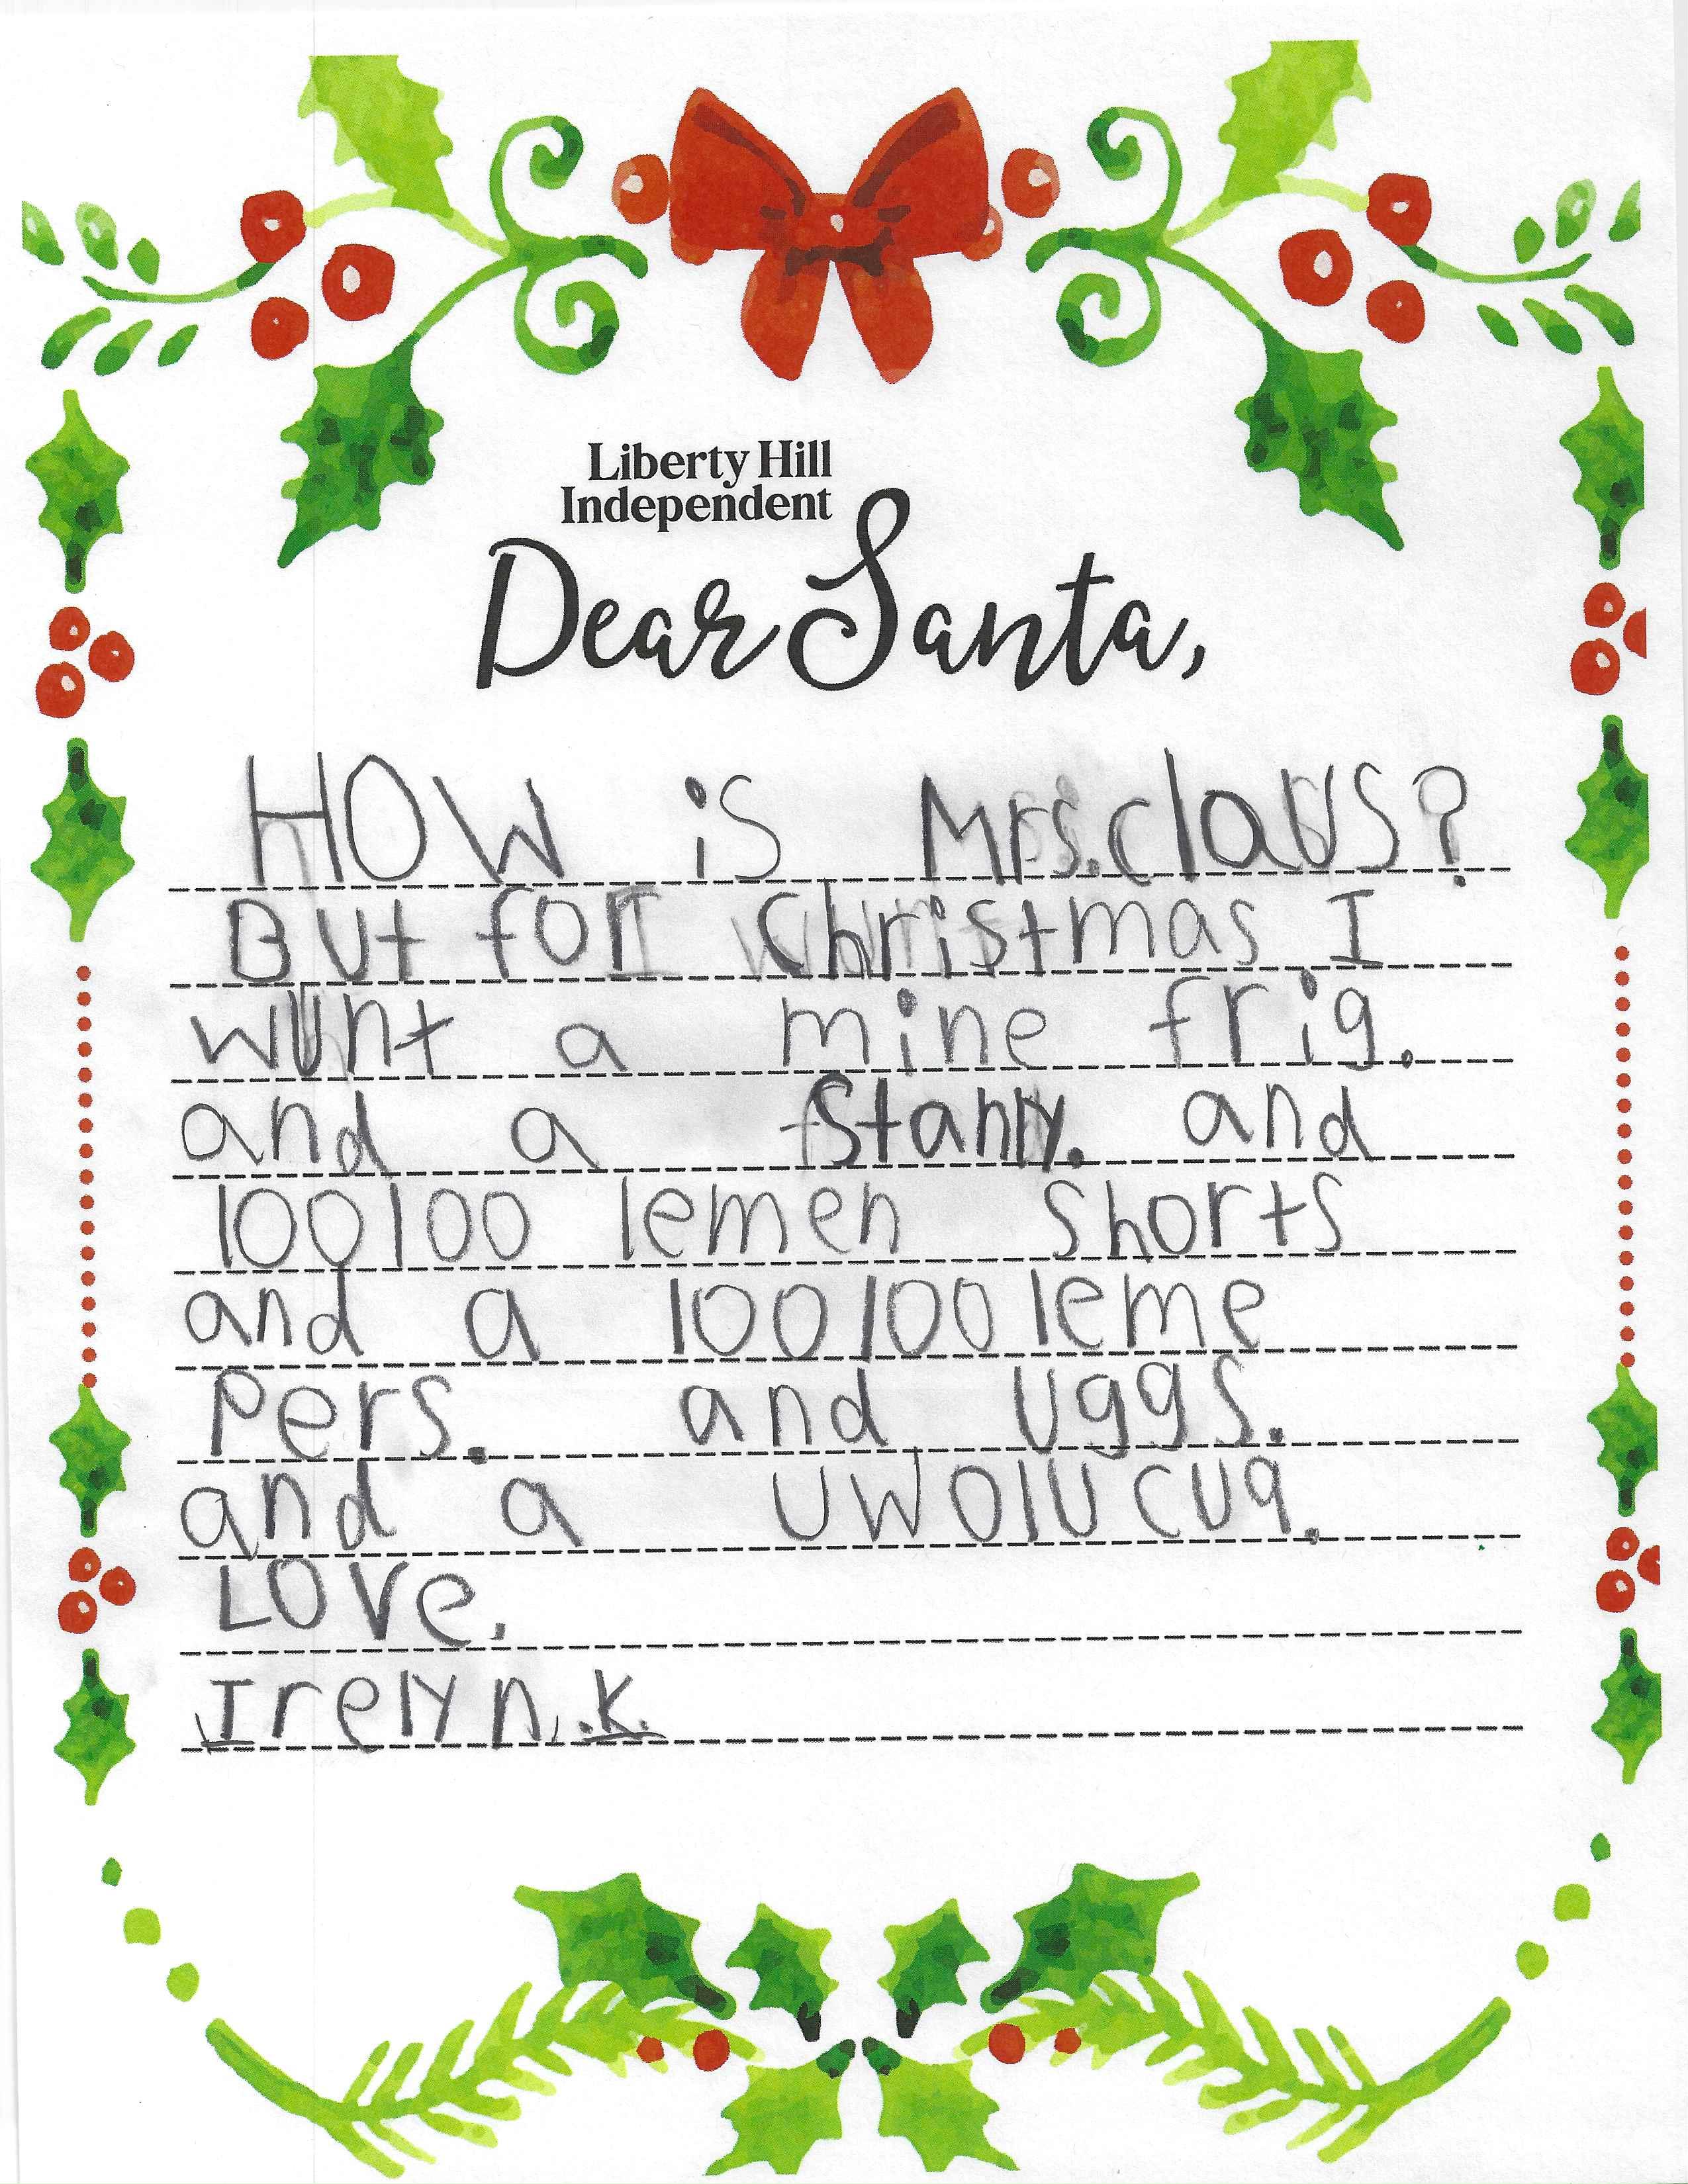 Liberty Hill
Independent
Dear Santa,
HOW is Mrs. claus?
But for Christmas I
wunt a mine frig.
and a Stanly. and
100100 lemen shorts
and a 100100 leme
Pers. and uggs.
and a UWOlU CUq.
LOVe,
Irelyn .K.